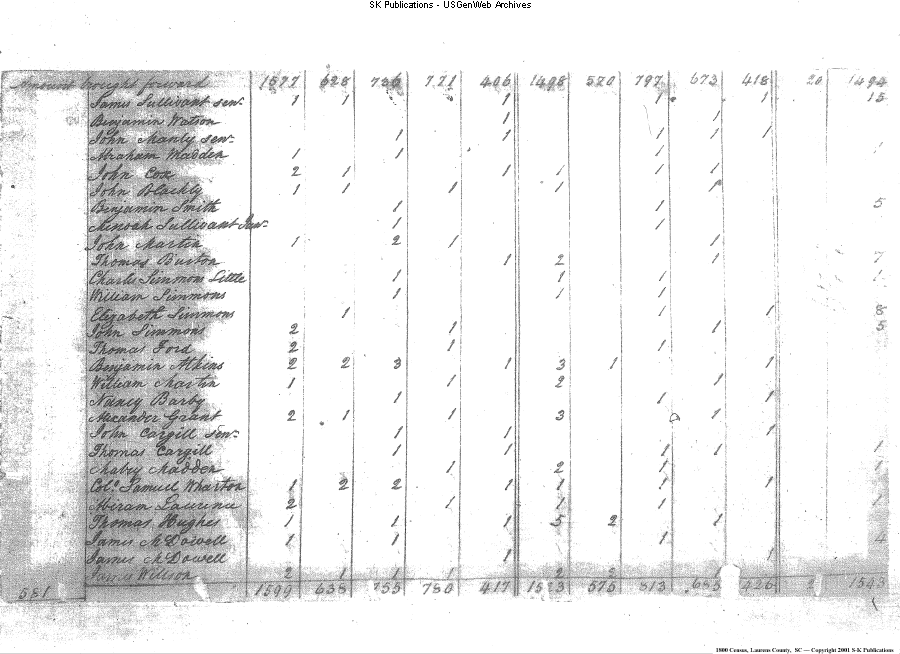 SK Publications - USGenWeb Archives
Amount brought forward 1577 628 736 771 406 1498 570 797 673 418 20 1494
James Sullivant senr 1 1 1 1 1 15
Benjamin Watson 1 1
John Manly senr 1 1 1 1 1 1
Abraham Madden 1 1 1
John Cox 2 1 1 1 1 1
John Blackly 1 1 1 1 1
Benjamin Smith 1 1 5
Sullivant 1 1
John Martin 1 2 1 1
Thomas Burton 1 2 1 7
Charles Simmons Little 1 1 1 1
William Simmons 1 1 1
Elizabeth Simmons 1 1 1 8
John Simmons 2 1 1 5
Thomas Ford 2 1 1
Benjamin Atkins 2 2 3 1 3 1 1 1 1
William Martin 1 1 2 1
Nancy Barby 1 1 1
Alexander Grant 2 1 1 1 3 1
John Cargill senr 1 1 1
Thomas Cargill 1 1 1 1 1
Mabry Madden 1 2 1 1
Colo. Samuel Wharton 1 2 2 1 1 1 1
Abiram 2 1 1 1 1
Thomas Hughes 1 1 1 5 2 1
James McDowell 1 1 1 4
James McDowell 1 1
James Willson 2 1 1 1 2 2
581 1599 638 755 780 417 1523 575 813 685 426 1543
1800 Census, Laurens County, SC — Copyright 2001 S-K Publications